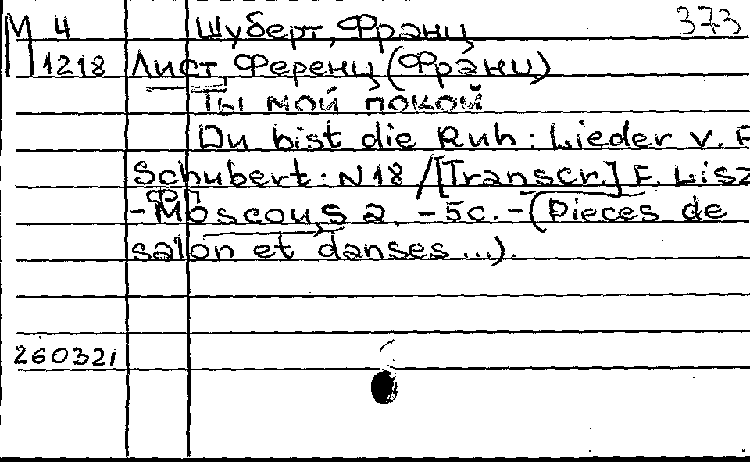 М 4 Шуберт, Франц 373
1218 Лист, Ференц (Франц)
Ты мой покой
Du bist die Ruh: Lieder v. F
Schubert: N18 / [Transcr.] F. Lisz
ФП
- Moscou, S a. - 5c. - (Pieces de
salon et danses ...).
260321